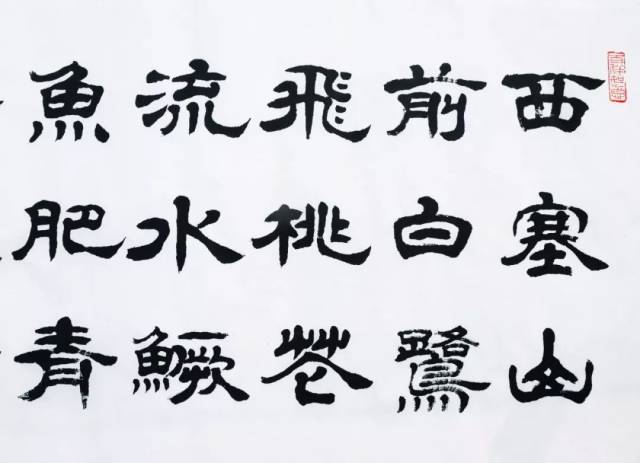 西塞山
前白鷺
飛桃花
流水鱖
魚肥青